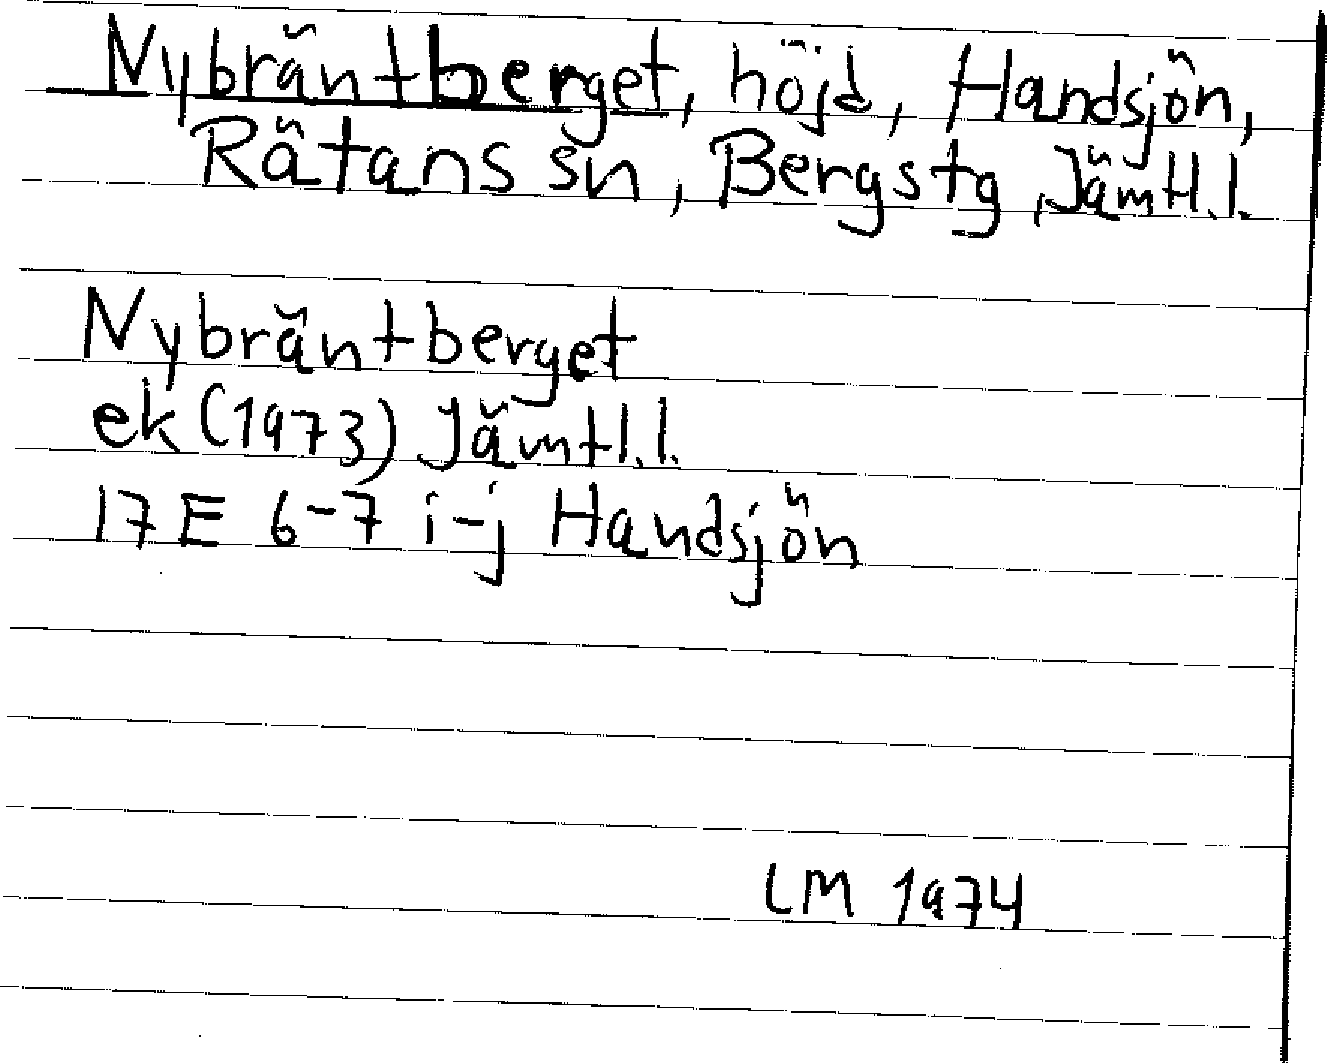 Nybräntberget, höjd, Handsjön,
Rätans sn, Bergs tg, Jämtl.l.
Nybräntberget
ek (1973) Jämtl.l.
17E 6-7 i-j Handsjön
LM 1974